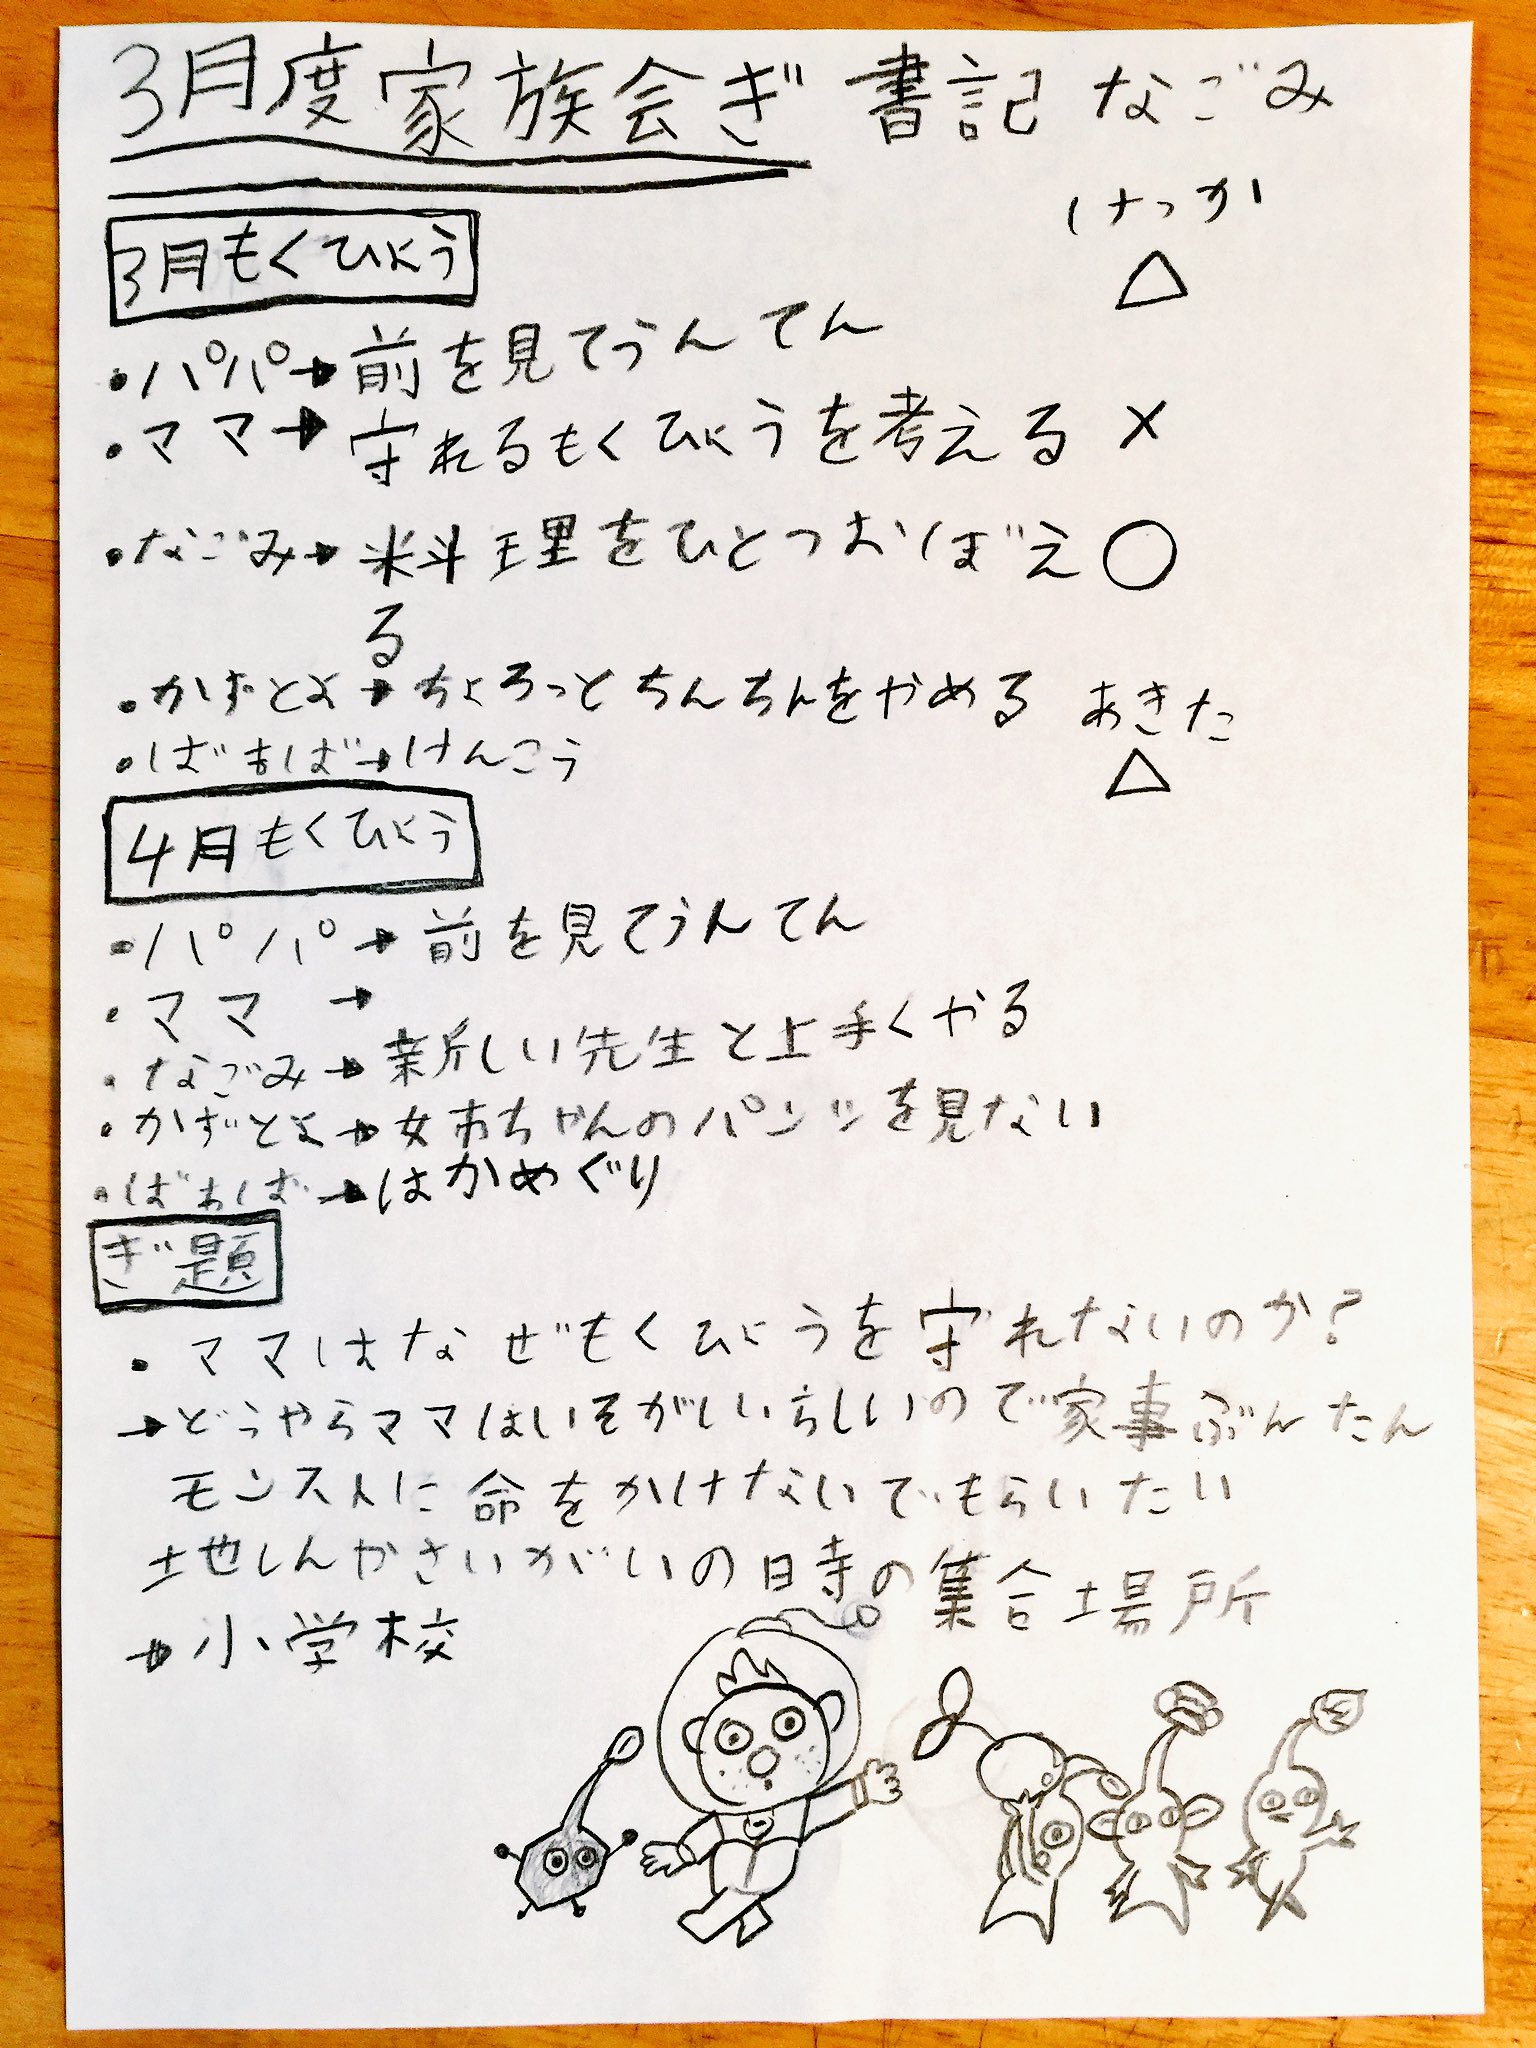 3月度家族会ぎ 書記 なごみ
けっか
3月もくひょう
・パパ→前を見てうんてん △
・ママ→守れるもくひょうを考える ×
・なごみ→料理をひとつおぼえ ○
る
・かずとよ→ちょろっとちんちんをやめる あきた
・ばあば→けんこう △
4月もくひょう
・パパ→前を見てうんてん
・ママ→
・なごみ→新しい先生と上手くやる
・かずとよ→女おちゃんのパンツを見ない
・ばあば→はかめぐり
ぎ題
・ママはなぜもくひょうを守れないのか?
→どうやらママはいそがしいらしいので家事ぶんたん
モンストに命をかけないでもらいたい
地しんかさいがいの時の集合場所
→小学校